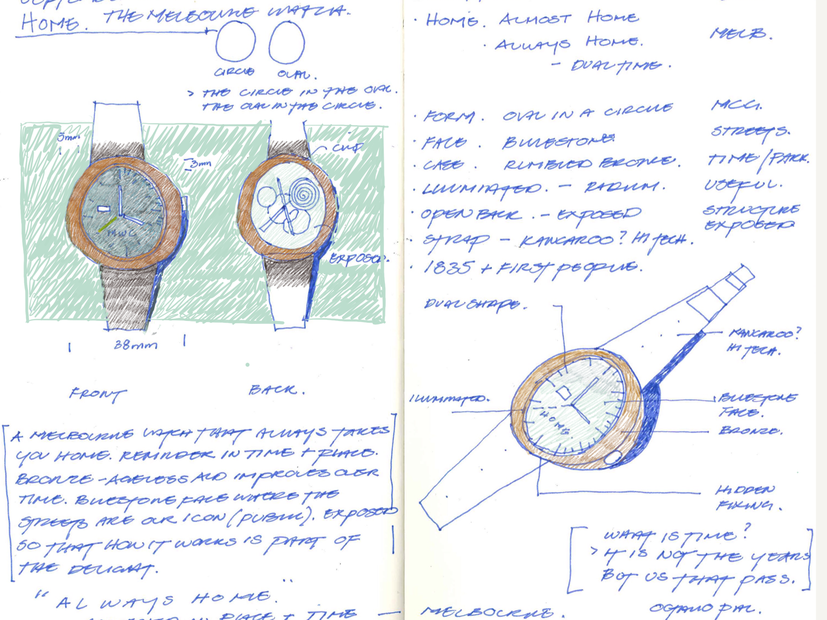 HOME. THE MELBOURNE WATCH.
CIRCLE OVAL.
> THE CIRCLE IN THE OVAL.
THE OVAL IN THE CIRCLE.
3mm
3mm
MWC
EXPOSED.
38mm
FRONT BACK.
A MELBOURNE WATCH THAT ALWAYS TAKES
YOU HOME. REMINDER IN TIME + PLACE.
BRONZE - AGELESS AND IMPROVES OVER
TIME. BLUESTONE FACE WHERE THE
STREETS ARE OUR ICON (PUBLIC). EXPOSED
SO THAT HOW IT WORKS IS PART OF
THE DELIGHT.
"ALWAYS HOME."
PLACE + TIME —
· HOME. ALMOST HOME
· ALWAYS HOME. MELB.
- DUAL TIME.
· FORM. OVAL IN A CIRCLE MCG.
· FACE. BLUESTONE STREETS.
· CASE. RUMBLED BRONZE. TIME/PARK.
· ILLUMINATED. - RADIUM. USEFUL.
· OPEN BACK. - EXPOSED STRUCTURE EXPOSED
· STRAP - KANGAROO? HI TECH.
· 1835 + FIRST PEOPLE.
DUAL SHAPE.
KANGAROO?
HI TECH.
ILLUMINATED.
BLUESTONE
FACE.
HOME
BRONZE.
HIDDEN
FIXING.
WHAT IS TIME?
> IT IS NOT THE YEARS
BUT US THAT PASS.
MELBOURNE.